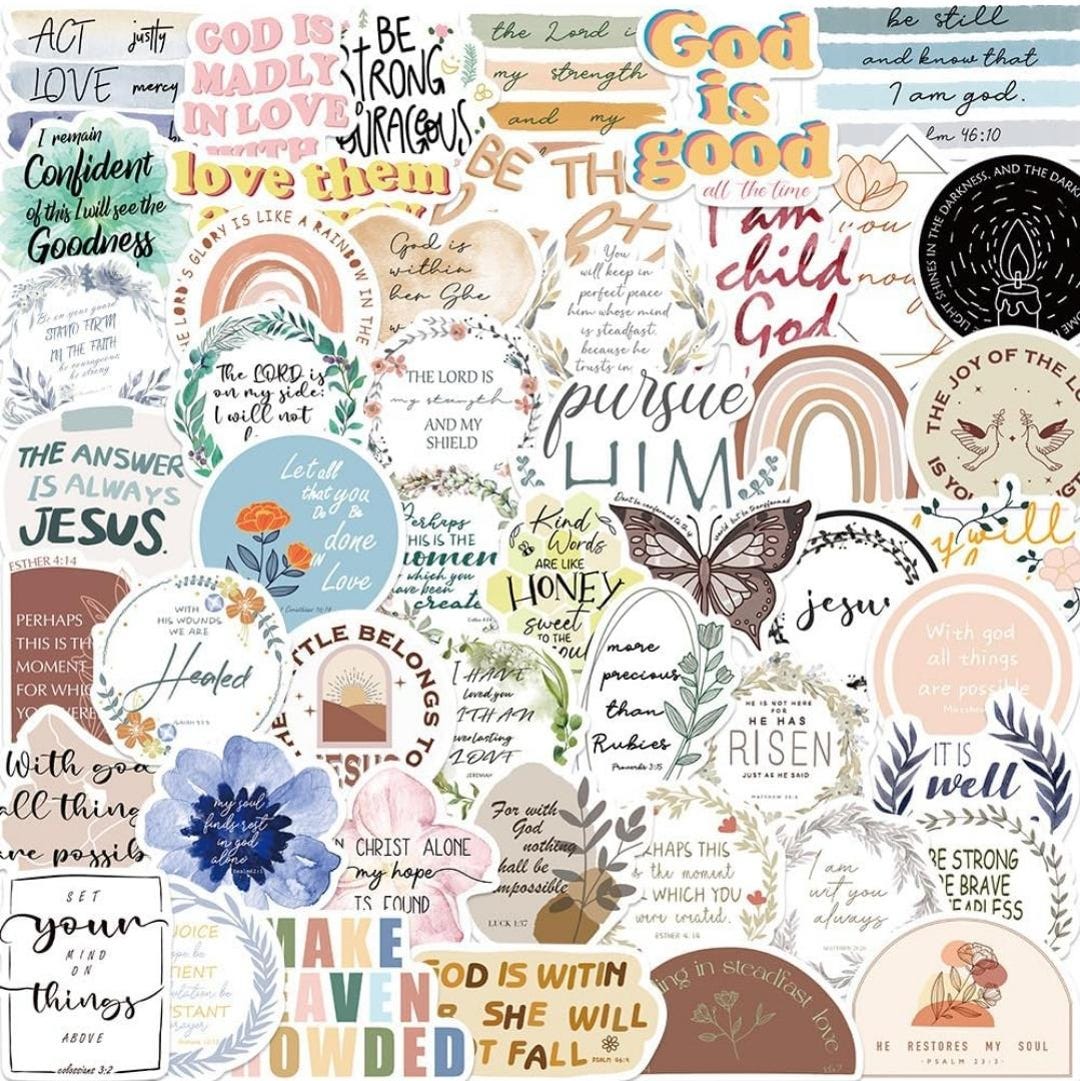 ACT justly
LOVE mercy
GOD IS
MADLY
IN LOVE
WITH
BE
STRONG
COURAGEOUS
the Lord i
my strength
and my
God
is
good
all the time
be still
and know that
I am god.
lm 46:10
I remain
Confident
of this I will see the
Goodness
love them
BE TH
I am
child
God
you
now
LIGHT SHINES IN THE DARKNESS, AND THE DARK
HE LORD'S GLORY IS LIKE A RAINBOW IN THE
God is
within
her She
You
will keep in
perfect peace
him whose mind
is steadfast,
because he
trusts in
Be on your guard
STAND FIRM
IN THE FAITH
be courageous
be strong
The LORD is
on my side;
I will not
THE LORD IS
my strength
AND MY
SHIELD
pursue
HIM
THE JOY OF THE LO
IS YOU NGTH
THE ANSWER
IS ALWAYS
JESUS.
Let all
that you
Do Be
done
IN
Love
1 Corinthians 16:14
Perhaps
THIS IS THE
moment
which you
have been
create
Kind
Words
ARE LIKE
HONEY
sweet
TO THE
soul
Don't be conformed to th world but be transformed
jesus
y will
ESTHER 4:14
PERHAPS
THIS IS TH
MOMENT
FOR WHIC
YOU WERE
WITH
HIS WOUNDS
WE ARE
Healed
ISAIAH 53:5
TTLE BELONGS TO
JESUS
I HAVE
loved you
WITH AN
everlasting
LOVE
JEREMIAH
more
precious
than
Rubies
Proverbs 3:15
HE IS NOT HERE
FOR
HE HAS
RISEN
JUST AS HE SAID
MATTHEW 28:6
With god
all things
are possible
Matthew
With god
all thing
are possib
my soul
finds rest
in god
alone
Psalm 62:1
N CHRIST ALONE
my hope
IS FOUND
For with
God
nothing
shall be
impossible
LUCK 1:37
RHAPS THIS
is the moment
WHICH YOU
were created.
ESTHER 4:14
IT IS
well
I am
wit you
always
MATTHEW 28:20
BE STRONG
BE BRAVE
FEARLESS
SET
your
MIND
ON
things
ABOVE
colossians 3:2
JOICE
hope be
TIENT
bulation be
NSTANT
prayer
Romans 12:12
MAKE
EAVEN
ROWDED
GOD IS WITIN
R SHE WILL
OT FALL
PSALM 46:5
ing in steadfast love
HE RESTORES MY SOUL
-PSALM 23:3-